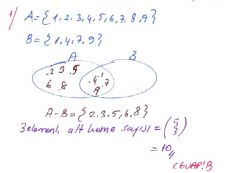 1) A={1,2,3,4,5,6,7,8,9}
B={1,4,7,9}
A B
2 3 5
6 8
4 1
7
9
A-B={2,3,5,6,8}
3 elemanlı alt küme sayısı = (5 3)
= 10//
CEVAP: B